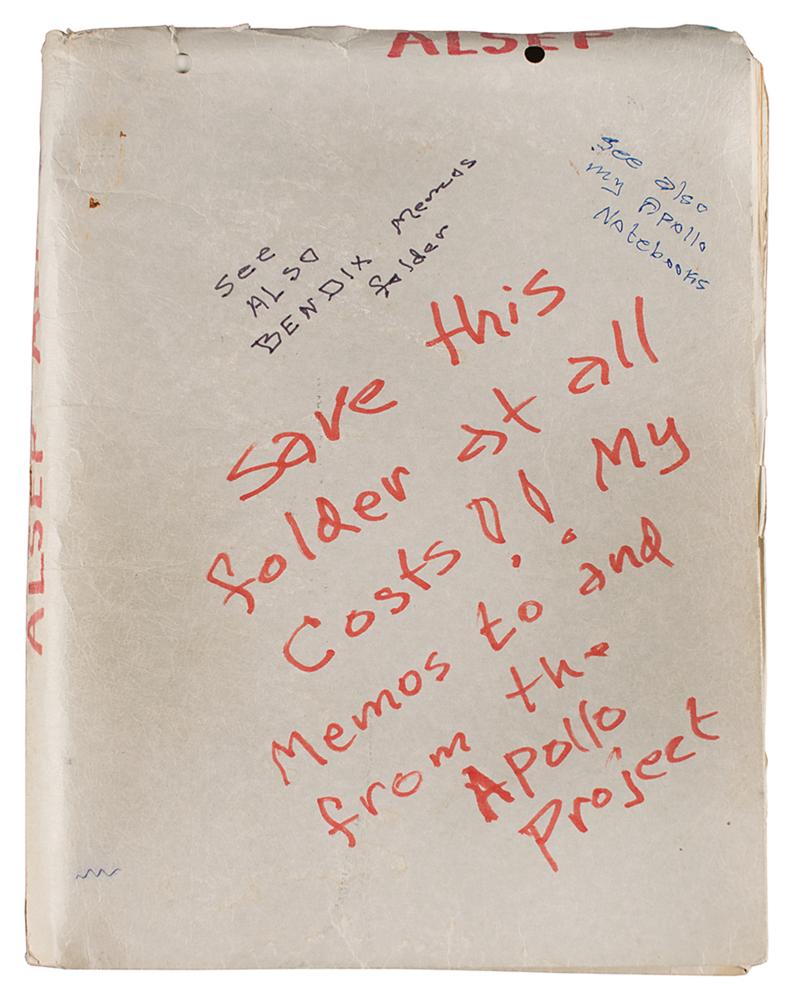 ALSEP
See also
my Apollo
Notebooks
See
ALSO
BENDIX Memos
folder
Save this
folder at all
Costs!! My
Memos to and
from the
Apollo
Project
ALSEP